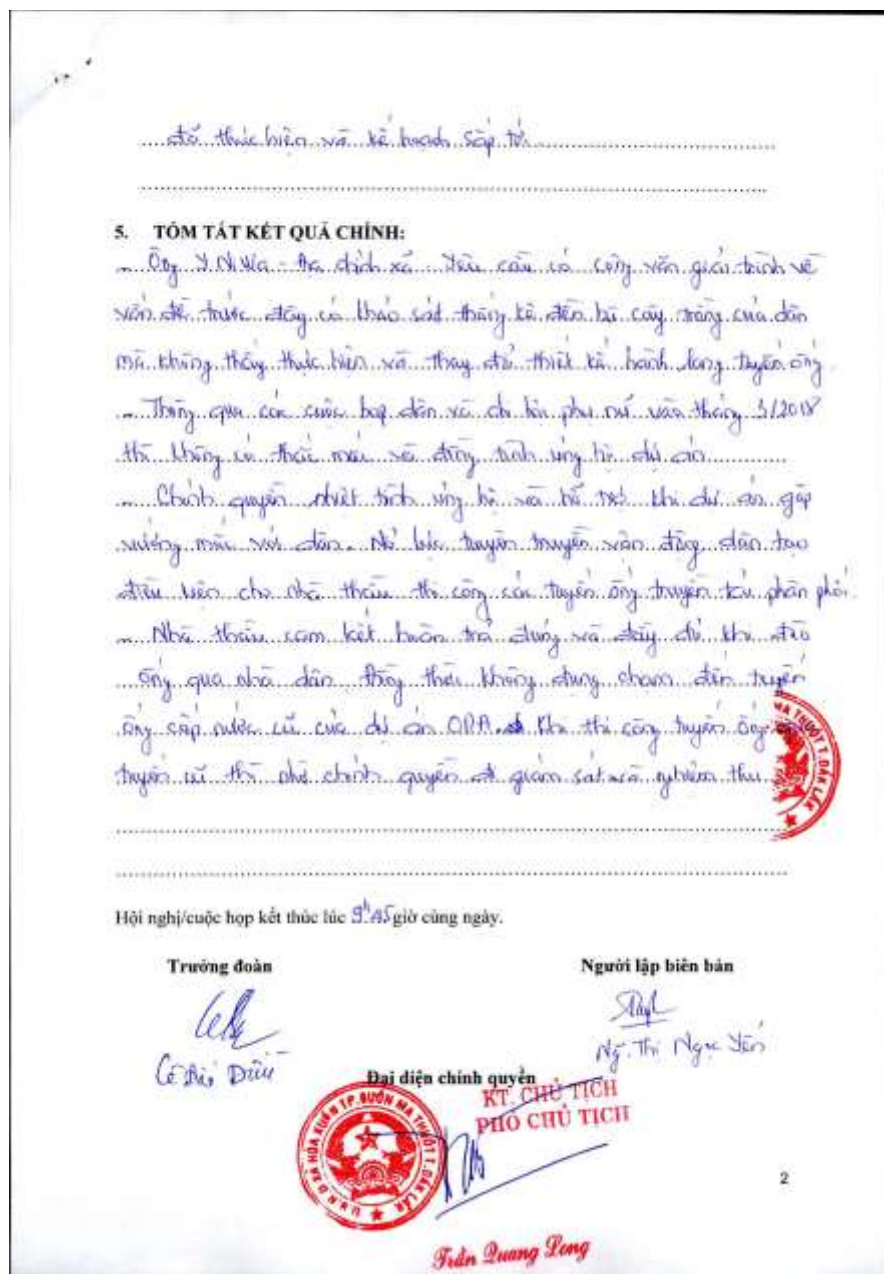 đã thực hiện và kế hoạch sắp tới
5. TÓM TẮT KẾT QUẢ CHÍNH:
- Ông Y Ni - địa chính xã: Yêu cầu có công văn giải trình về
vấn đề trước đây có khảo sát thống kê đền bù cây trồng của dân
mà không thấy thực hiện và thay đổi thiết kế hành lang tuyến ống
- Thông qua các cuộc họp dân và chi hội phụ nữ vào tháng 3/2018
thì không có thắc mắc và đồng tình ủng hộ dự án
- Chính quyền nhiệt tình ủng hộ và hỗ trợ khi dự án gặp
vướng mắc với dân. Nỗ lực tuyên truyền vận động dân tạo
điều kiện cho nhà thầu thi công các tuyến ống truyền tải phân phối.
- Nhà thầu cam kết hoàn trả đúng và đầy đủ khi đào
ống qua nhà dân đồng thời không đụng chạm đến tuyến
ống cấp nước cũ của dự án ODA. Khi thi công tuyến ống
tuyến cũ thì nhờ chính quyền đi giám sát và nghiệm thu
Hội nghị/cuộc họp kết thúc lúc 9h45 giờ cùng ngày.
Trưởng đoàn
Người lập biên bản
Ng. Thị Ngọc Yến
Đại diện chính quyền
KT. CHỦ TỊCH
PHÓ CHỦ TỊCH
U.B.N.D XÃ HÒA XUÂN TP.BUÔN MA THUỘT T.ĐẮK LẮK
MA THUỘT T.ĐẮK LẮK
Trần Quang Long
2